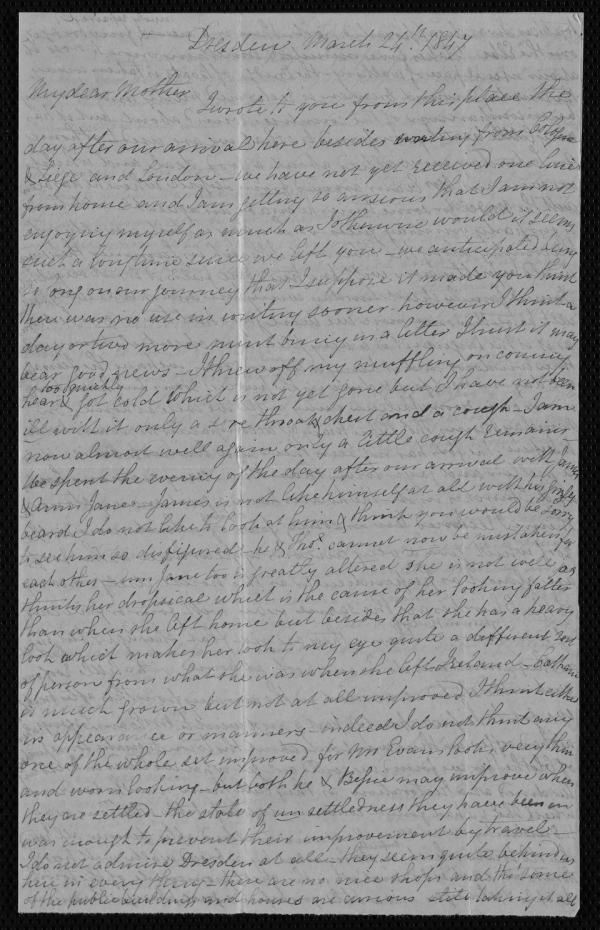 Dresden March 24th 1847
My dear Mother I wrote to you from this place the
day after our arrival here besides writing from Cologne
& Liege and London – we have not yet received one line
from home and I am getting so anxious that I am not
enjoying myself as much as I otherwise would it seems
such a long time since we left you – we anticipated being
so long on our journey that I suppose it made you think
there was no use in writing sooner however I think a
day or two more must bring us a letter I trust it may
bear good news – I threw off my muffling on coming
here too quickly & got cold which is not yet gone but I have not been
ill with it only a sore throat & chest and a cough – I am
now almost well again only a little cough remains –
We spent the evening of the day after our arrival with James
& Anna Jane – James is not like himself at all with his grizly
beard I do not like to look at him & think you would be sorry
to see him so disfigured – he & Thos. cannot now be mistaken for
each other – Ann Jane too is greatly altered she is not well as
thinks her dropsical which is the cause of her looking fatter
than when she left home but besides that she has a heavy
look which makes her look to my eye quite a different sort
of person from what she was when she left Ireland –
is much grown but not at all improved I think either
in appearance or manners – indeed I do not think any
one of the whole set improved for Mr Evans looks very thin
and worn looking – but both he & Bessie may improve when
they are settled – the state of unsettledness they have been in
was enough to prevent their improvement by travel –
I do not admire Dresden at all – they seem quite behind us
here in every thing – there are no nice shops and tho' some
of the public buildings and houses are curious still taking it all